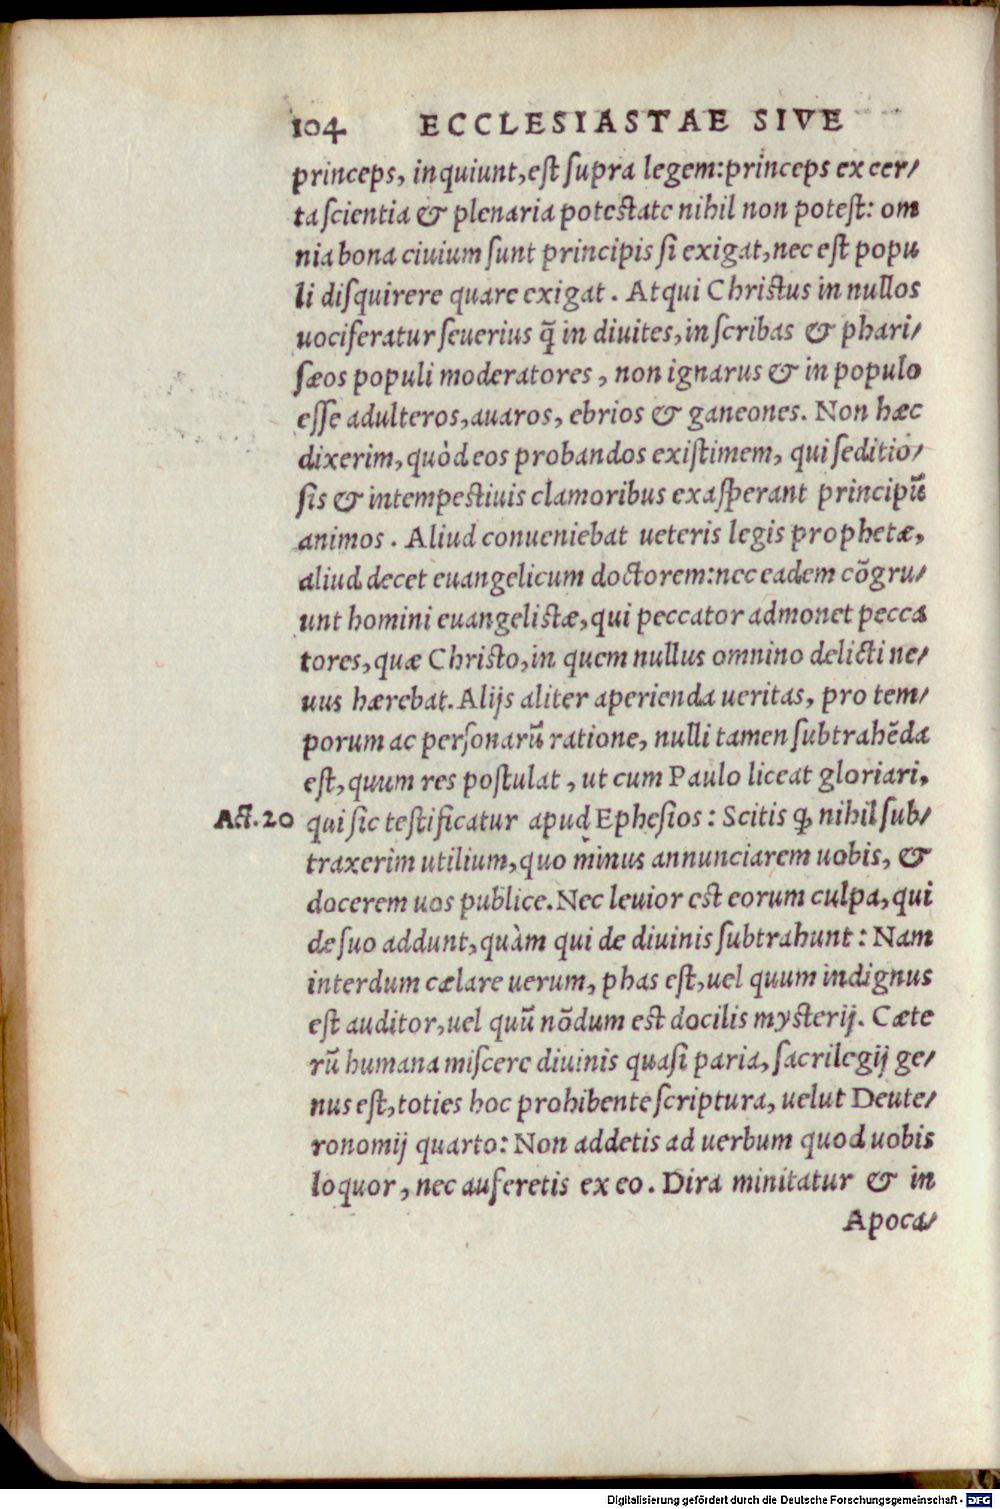 104 ECCLESIASTAE SIVE
princeps, inquiunt, est supra legem: princeps ex cer/
ta scientia & plenaria potestate nihil non potest: om
nia bona ciuium sunt principis si exigat, nec est popu
li disquirere quare exigat. Atqui Christus in nullos
uociferatur seuerius q̃ in diuites, in scribas & phari/
sæos populi moderatores, non ignarus & in populo
esse adulteros, auaros, ebrios & ganeones. Non hæc
dixerim, quòd eos probandos existimem, qui seditio/
sis & intempestiuis clamoribus exasperant principũ
animos. Aliud conueniebat ueteris legis prophetæ,
aliud decet euangelicum doctorem: nec eadem cõgru/
unt homini euangelistæ, qui peccator admonet pecca
tores, quæ Christo, in quem nullus omnino delicti ne/
uus hærebat. Alijs aliter aperienda ueritas, pro tem/
porum ac personarũ ratione, nulli tamen subtrahẽda
est, quum res postulat, ut cum Paulo liceat gloriari,
Act. 20 qui sic testificatur apud Ephesios: Scitis ꝙ nihil sub/
traxerim utilium, quo minus annunciarem uobis, &
docerem uos publice. Nec leuior est eorum culpa, qui
de suo addunt, quàm qui de diuinis subtrahunt: Nam
interdum cælare uerum, phas est, uel quum indignus
est auditor, uel quũ nõdum est docilis mysterij. Cæte
rũ humana miscere diuinis quasi paria, sacrilegij ge/
nus est, toties hoc prohibente scriptura, uelut Deute/
ronomij quarto: Non addetis ad uerbum quod uobis
loquor, nec auferetis ex eo. Dira minitatur & in
Apoca/
Digitalisierung gefördert durch die Deutsche Forschungsgemeinschaft - DFG